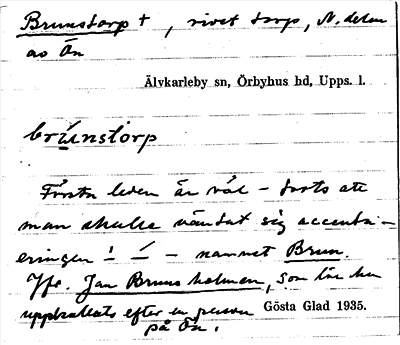 Brunstorp †, rivet torp, N. delen
av Ön
Älvkarleby sn, Örbyhus hd, Upps. l.
brùnstòrp
Första leden är väl – trots att
man skulle väntat sig accentu-
eringen ' – – namnet Brun.
Jfr. Jan Bruns holmen, som lär ha
uppkallats efter en person
på Ön.
Gösta Glad 1935.